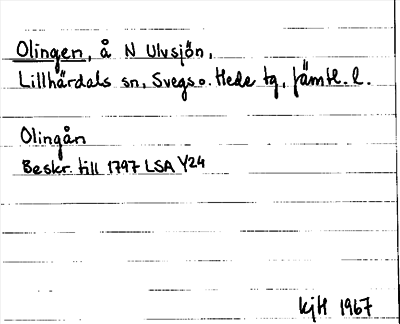 Olingen, å N Ulvsjön,
Lillhärdals sn, Svegs o. Hede tg, Jämtl. l.
Olingån
Beskr. till 1797 LSA Y24
kjH 1967